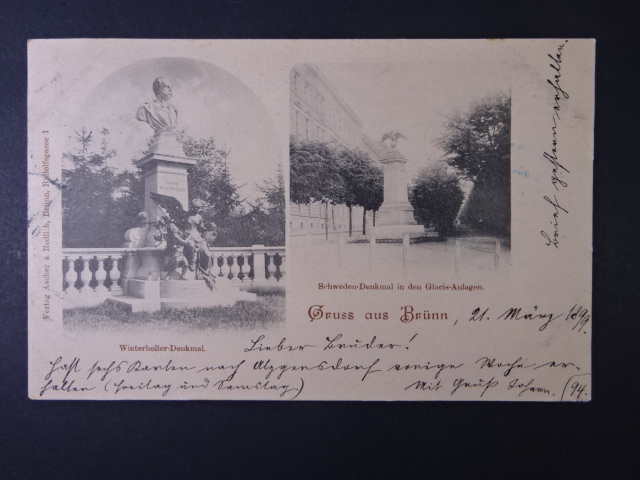 Verlag Ascher & Redlich, Brünn, Rudolfsgasse 1
Winterholler-Denkmal.
Schweden-Denkmal in den Glacis-Anlagen.
Gruss aus Brünn, 21. März 1899.
Lieber Bruder!
Hast sechs Karten nach vorige Woche er-
halten (Freitag und Samstag)
Mit Gruß Johann. (94.
brief gestern erhalten.